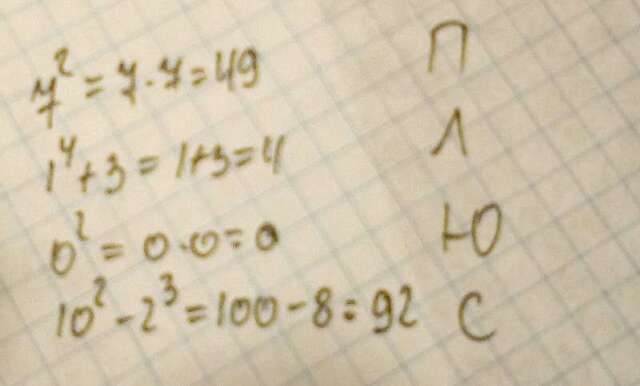 7² = 7 · 7 = 49 П
1⁴ + 3 = 1 + 3 = 4 Л
0² = 0 · 0 = 0 Ю
10² - 2³ = 100 - 8 = 92 С